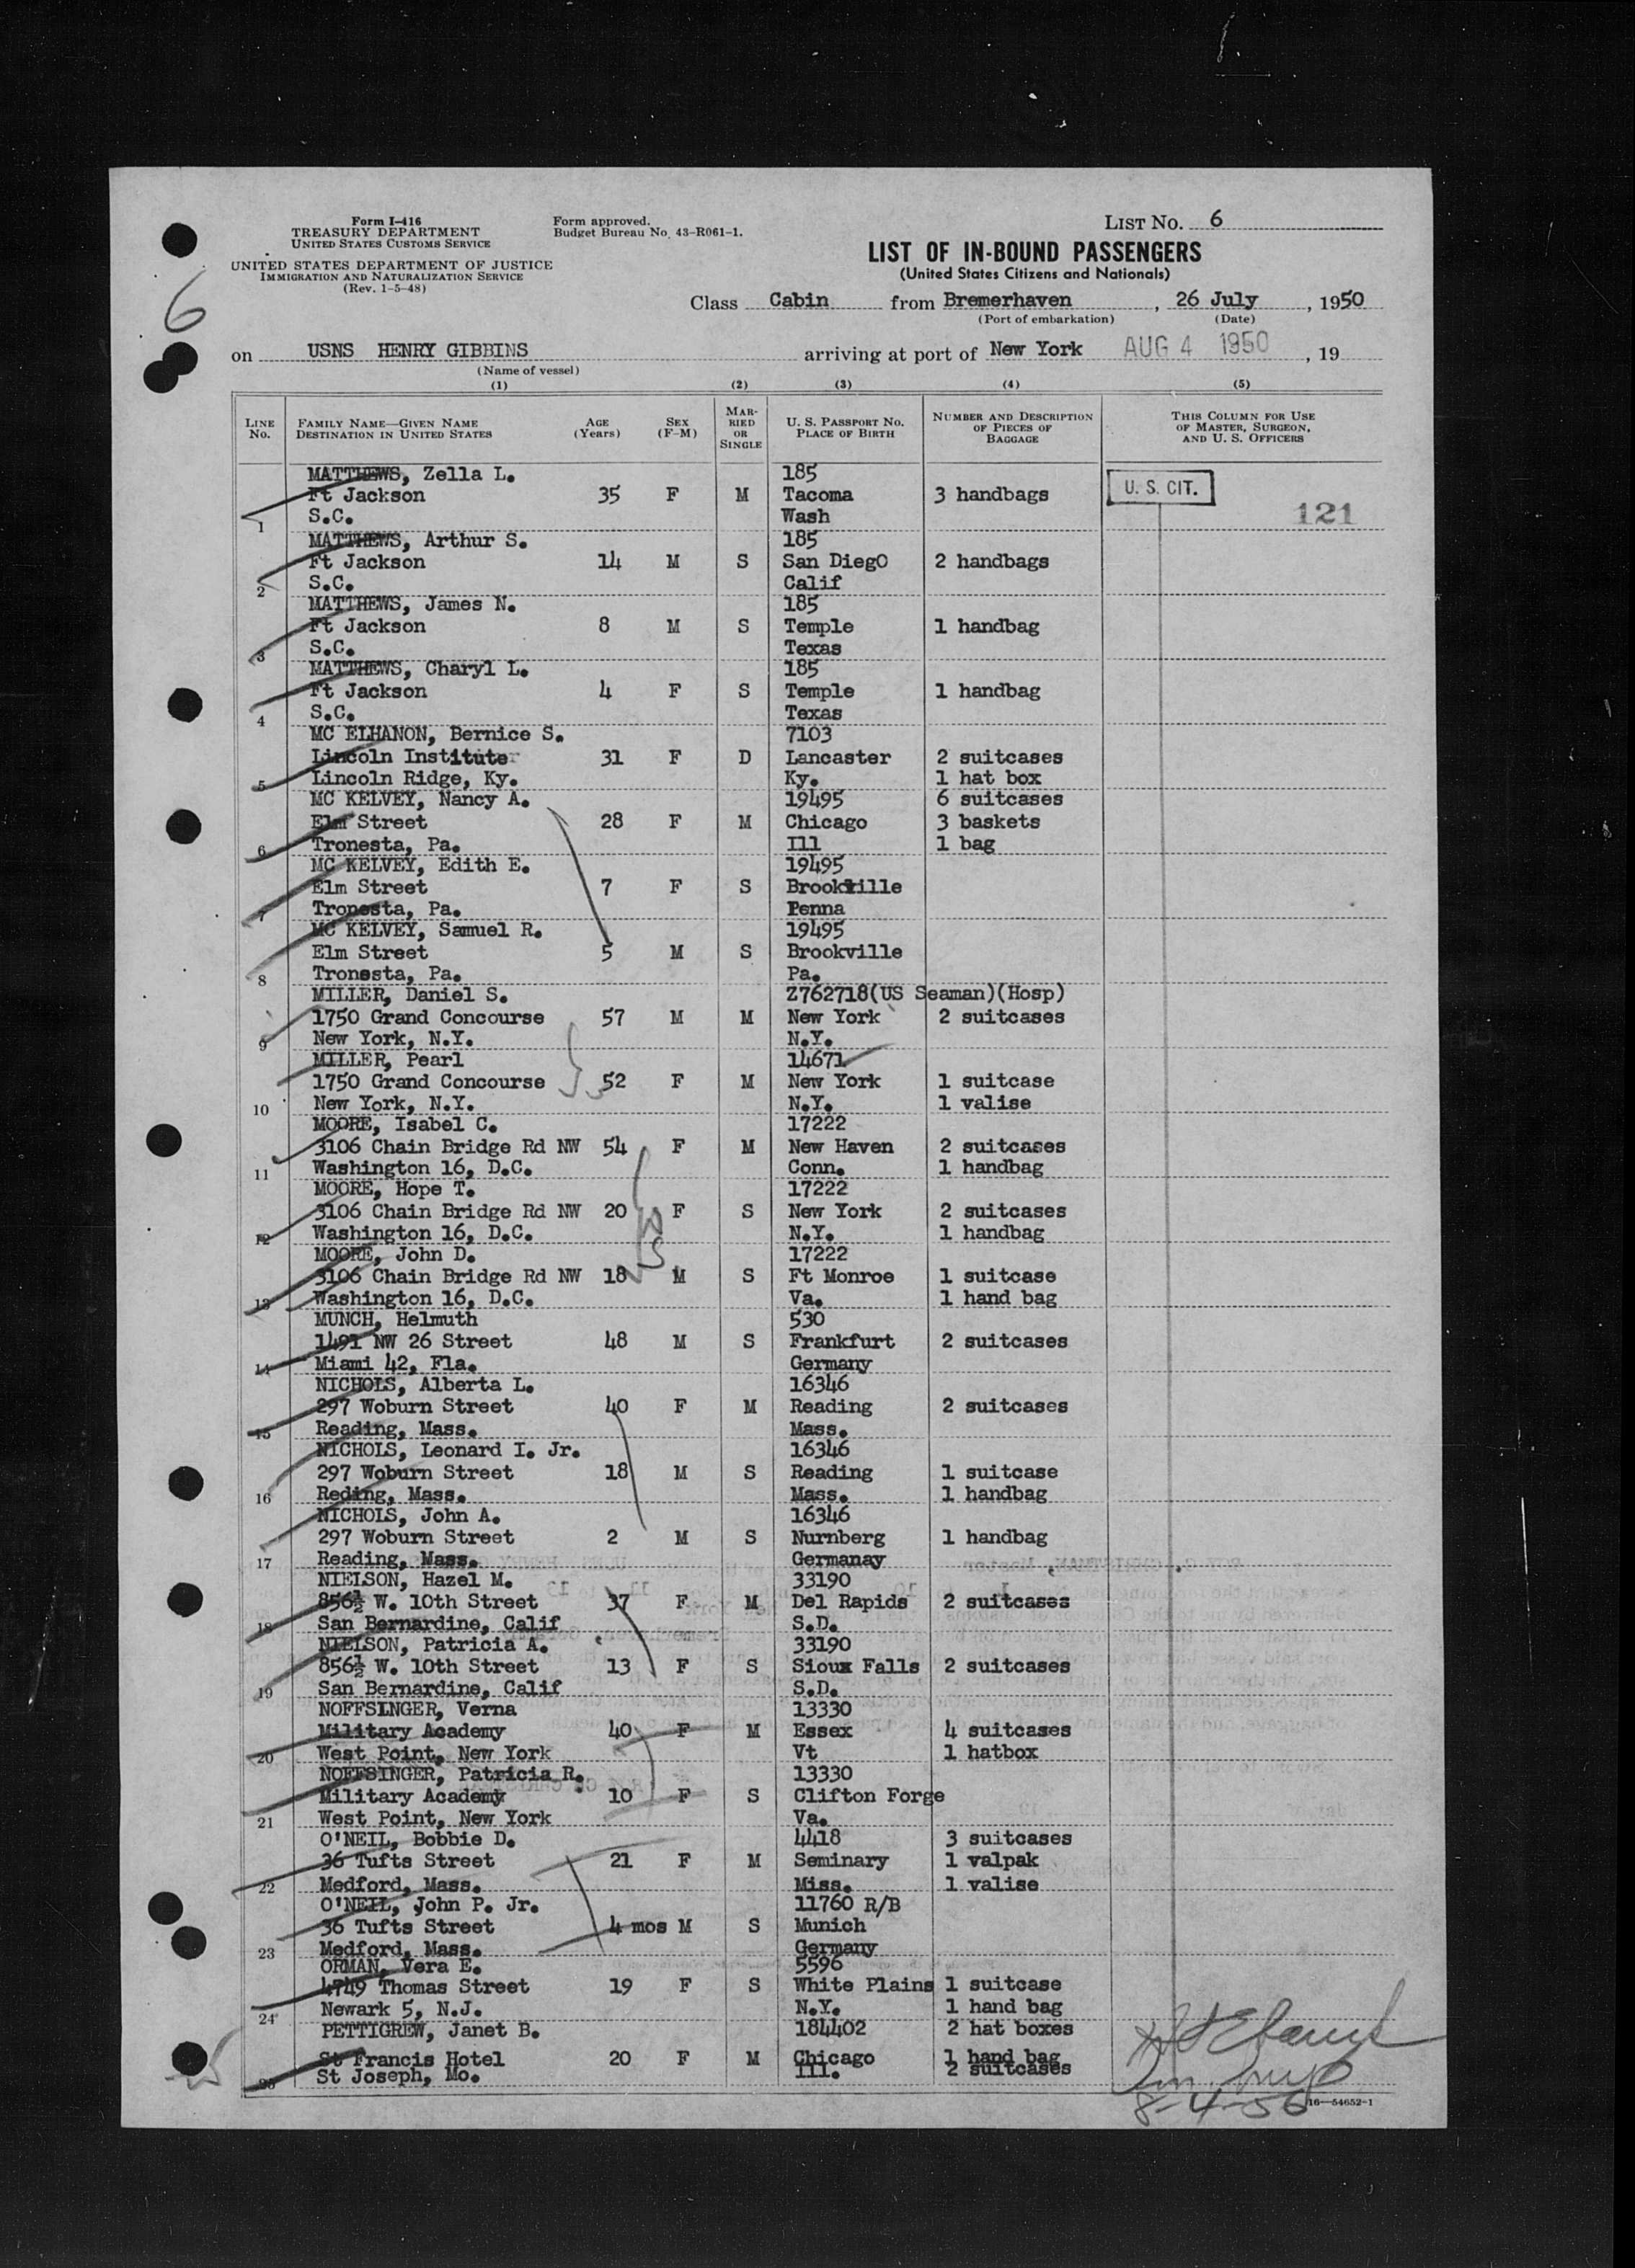 Form I-416
TREASURY DEPARTMENT
UNITED STATES CUSTOMS SERVICE
UNITED STATES DEPARTMENT OF JUSTICE
IMMIGRATION AND NATURALIZATION SERVICE
(Rev. 1-5-48)
Form approved.
Budget Bureau No. 43-R061-1.
LIST No. 6
LIST OF IN-BOUND PASSENGERS
(United States Citizens and Nationals)
6
Class Cabin from Bremerhaven, 26 July, 1950
(Port of embarkation) (Date)
on USNS HENRY GIBBINS arriving at port of New York AUG 4 1950, 19
(Name of vessel)
(1) (2) (3) (4) (5)
LINE No. FAMILY NAME—GIVEN NAME DESTINATION IN UNITED STATES AGE (Years) SEX (F-M) MARRIED OR SINGLE U. S. PASSPORT NO. PLACE OF BIRTH NUMBER AND DESCRIPTION OF PIECES OF BAGGAGE THIS COLUMN FOR USE OF MASTER, SURGEON, AND U. S. OFFICERS
MATTHEWS, Zella L. 185
Ft Jackson 35 F M Tacoma 3 handbags U. S. CIT.
1 S.C. Wash 121
MATTHEWS, Arthur S. 185
Ft Jackson 14 M S San DiegO 2 handbags
2 S.C. Calif
MATTHEWS, James N. 185
Ft Jackson 8 M S Temple 1 handbag
3 S.C. Texas
MATTHEWS, Charyl L. 185
Ft Jackson 4 F S Temple 1 handbag
4 S.C. Texas
MC ELHANON, Bernice S. 7103
Lincoln Institute 31 F D Lancaster 2 suitcases
5 Lincoln Ridge, Ky. Ky. 1 hat box
MC KELVEY, Nancy A. 19495 6 suitcases
Elm Street 28 F M Chicago 3 baskets
6 Tronesta, Pa. Ill 1 bag
MC KELVEY, Edith E. 19495
Elm Street 7 F S Brookville
7 Tronesta, Pa. Penna
MC KELVEY, Samuel R. 19495
Elm Street 5 M S Brookville
8 Tronesta, Pa. Pa.
MILLER, Daniel S. Z762718(US Seaman)(Hosp)
1750 Grand Concourse 57 M M New York 2 suitcases
9 New York, N.Y. N.Y.
MILLER, Pearl 14671
1750 Grand Concourse 52 F M New York 1 suitcase
10 New York, N.Y. N.Y. 1 valise
MOORE, Isabel C. 17222
3106 Chain Bridge Rd NW 54 F M New Haven 2 suitcases
11 Washington 16, D.C. Conn. 1 handbag
MOORE, Hope T. 17222
3106 Chain Bridge Rd NW 20 F S New York 2 suitcases
12 Washington 16, D.C. N.Y. 1 handbag
MOORE, John D. 17222
3106 Chain Bridge Rd NW 18 M S Ft Monroe 1 suitcase
13 Washington 16, D.C. Va. 1 hand bag
MUNCH, Helmuth 530
1491 NW 26 Street 48 M S Frankfurt 2 suitcases
14 Miami 42, Fla. Germany
NICHOLS, Alberta L. 16346
297 Woburn Street 40 F M Reading 2 suitcases
15 Reading, Mass. Mass.
NICHOLS, Leonard I. Jr. 16346
297 Woburn Street 18 M S Reading 1 suitcase
16 Reding, Mass. Mass. 1 handbag
NICHOLS, John A. 16346
297 Woburn Street 2 M S Nurnberg 1 handbag
17 Reading, Mass. Germanay
NIELSON, Hazel M. 33190
856½ W. 10th Street 37 F M Del Rapids 2 suitcases
18 San Bernardine, Calif S.D.
NIELSON, Patricia A. 33190
856½ W. 10th Street 13 F S Sioux Falls 2 suitcases
19 San Bernardine, Calif S.D.
NOFFSINGER, Verna 13330
Military Academy 40 F M Essex 4 suitcases
20 West Point, New York Vt 1 hatbox
NOFFSINGER, Patricia R. 13330
Military Academy 10 F S Clifton Forge
21 West Point, New York Va.
O'NEIL, Bobbie D. 4418 3 suitcases
36 Tufts Street 21 F M Seminary 1 valpak
22 Medford, Mass. Miss. 1 valise
O'NEIL, John P. Jr. 11760 R/B
36 Tufts Street 4 mos M S Munich
23 Medford, Mass. Germany
ORMAN, Vera E. 5596
4749 Thomas Street 19 F S White Plains 1 suitcase
24 Newark 5, N.J. N.Y. 1 hand bag
PETTIGREW, Janet B. 184402 2 hat boxes
St Francis Hotel 20 F M Chicago 1 hand bag
25 St Joseph, Mo. Ill. 2 suitcases
8-4-50
16—54652-1